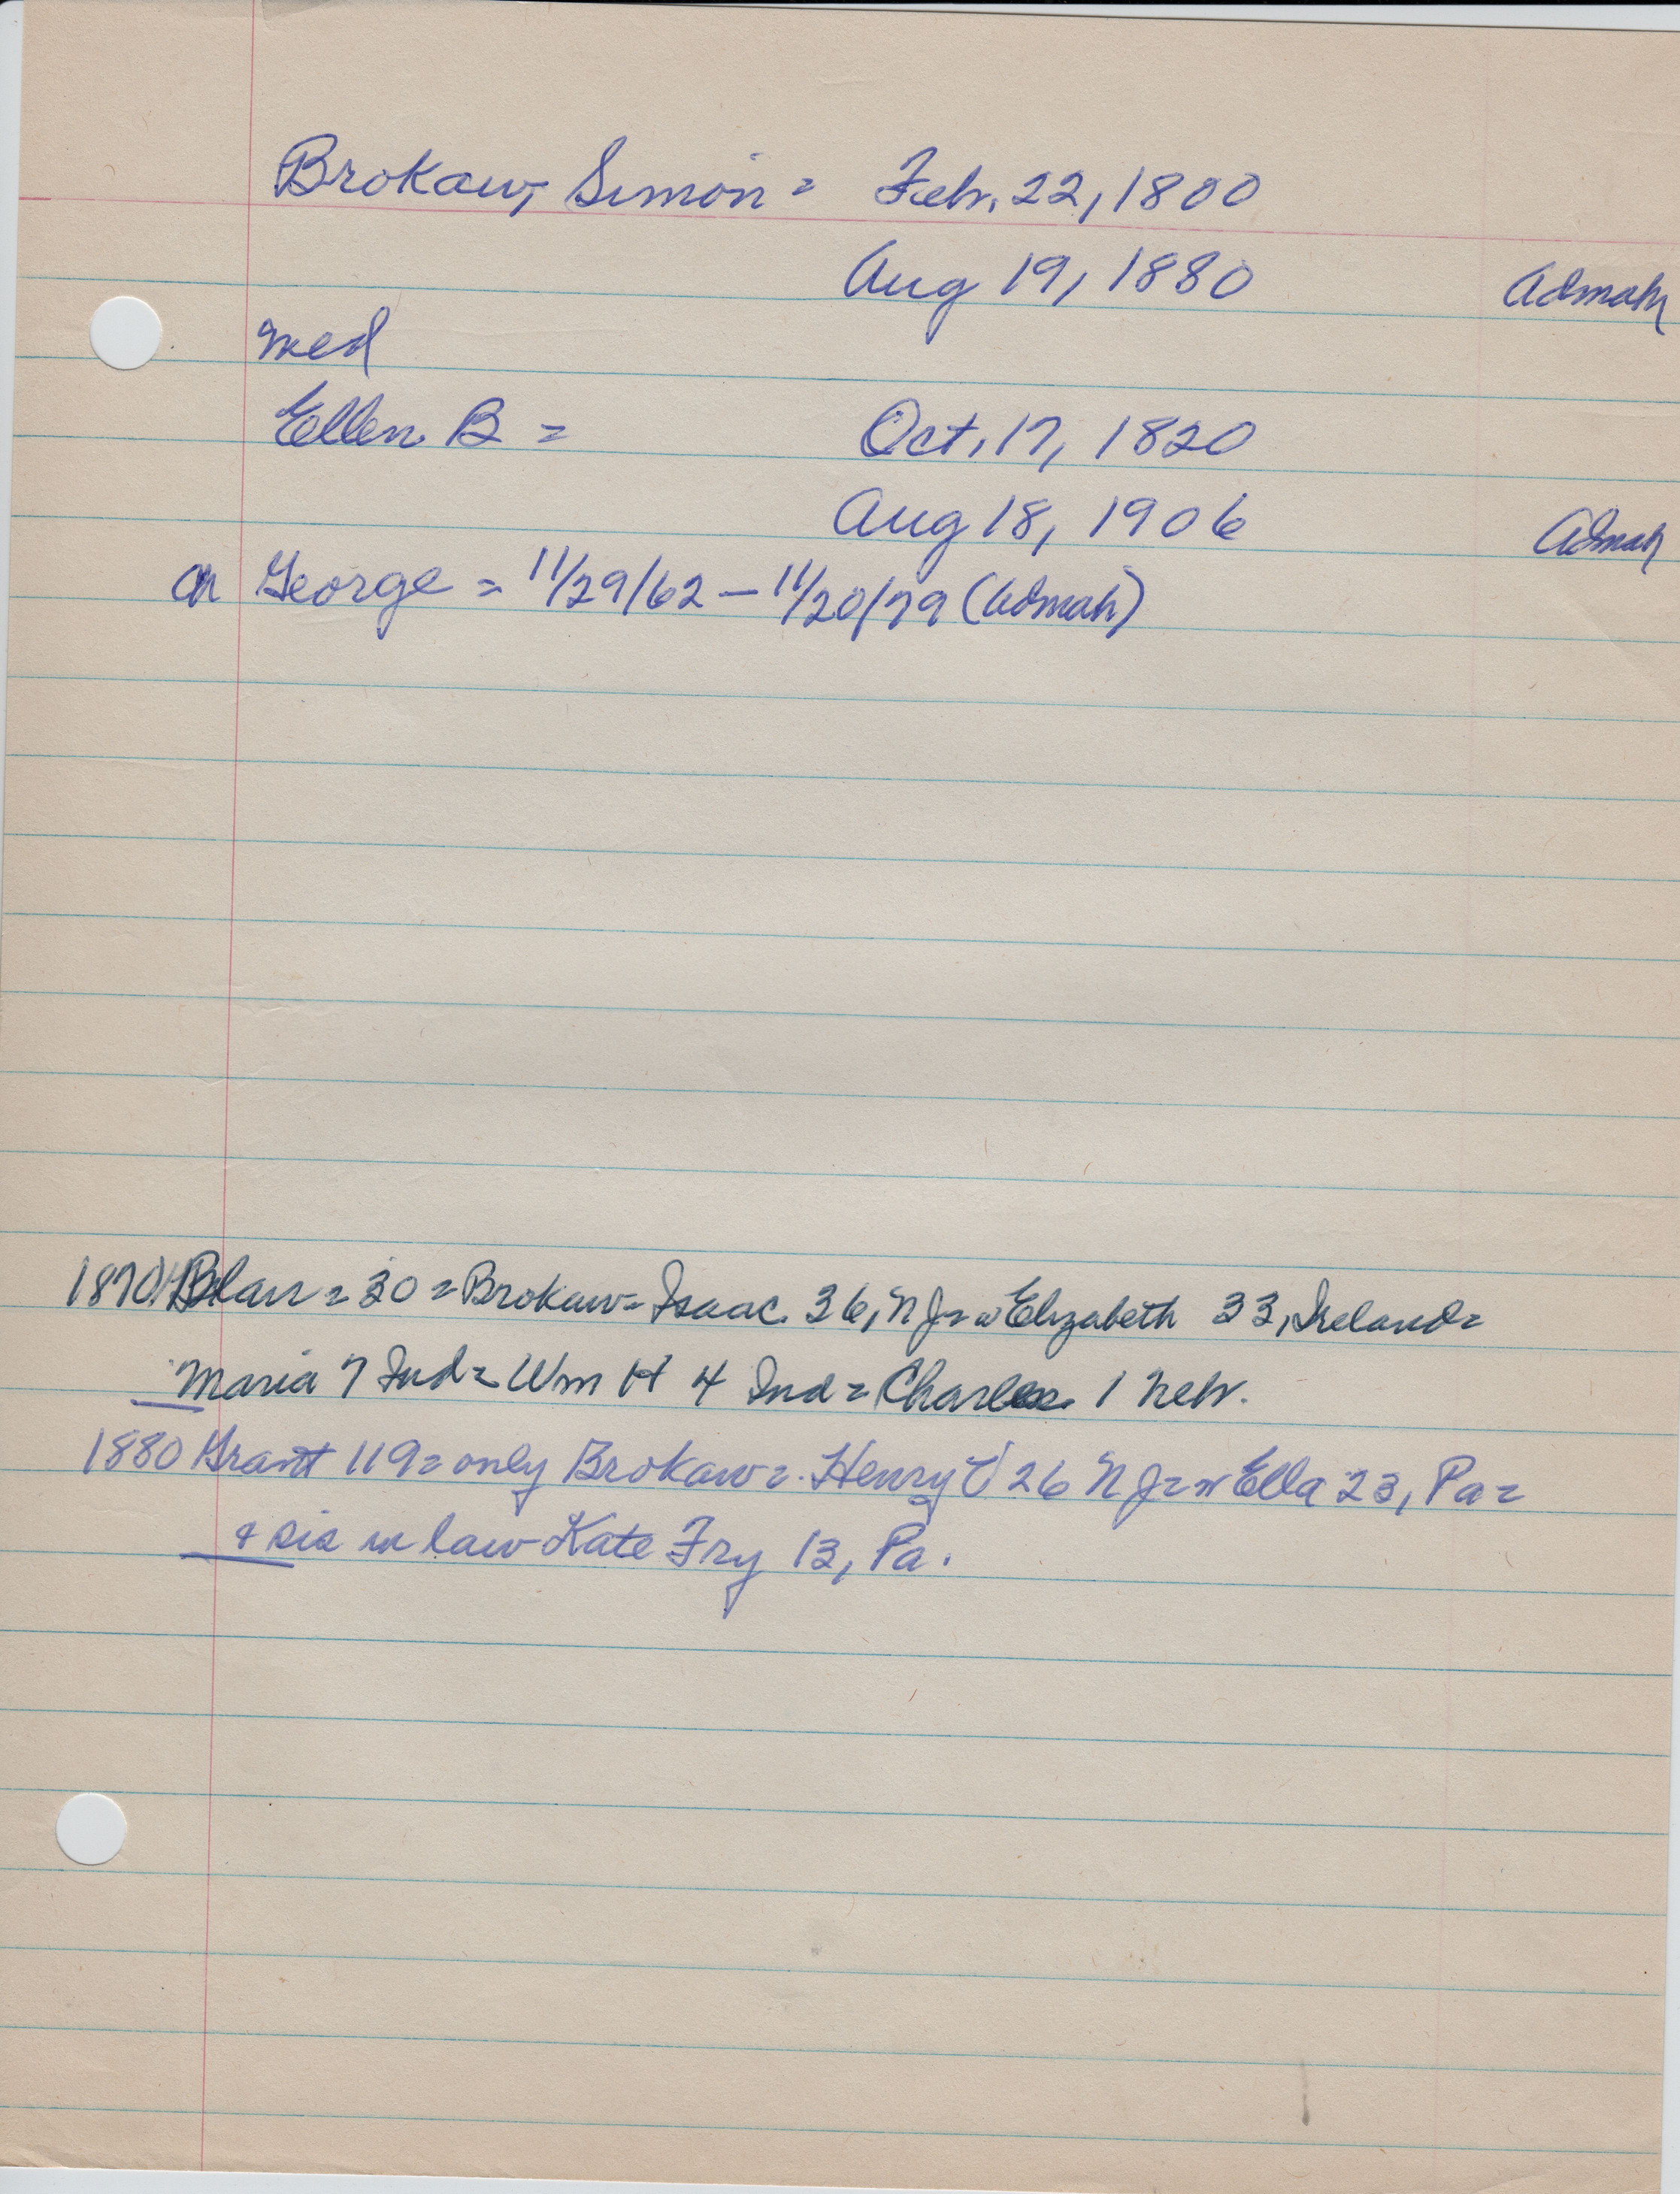 Brokaw, Simon = Feb. 22, 1800
Aug 19, 1880 Admah
med
Ellen B = Oct. 17, 1820
Aug 18, 1906 Admah
ch George = 11/29/62 - 11/20/79 (Admah)
1870 Blair = 30 = Brokaw = Isaac 36, NJ = w Elizabeth 33, Ireland =
Maria 7 Ind = Wm H 4 Ind = Charles 1 Nebr.
1880 Grant 119 = only Brokaw = Henry 26 NJ = w Ella 23, Pa =
& sis in law Kate Fry 13, Pa.